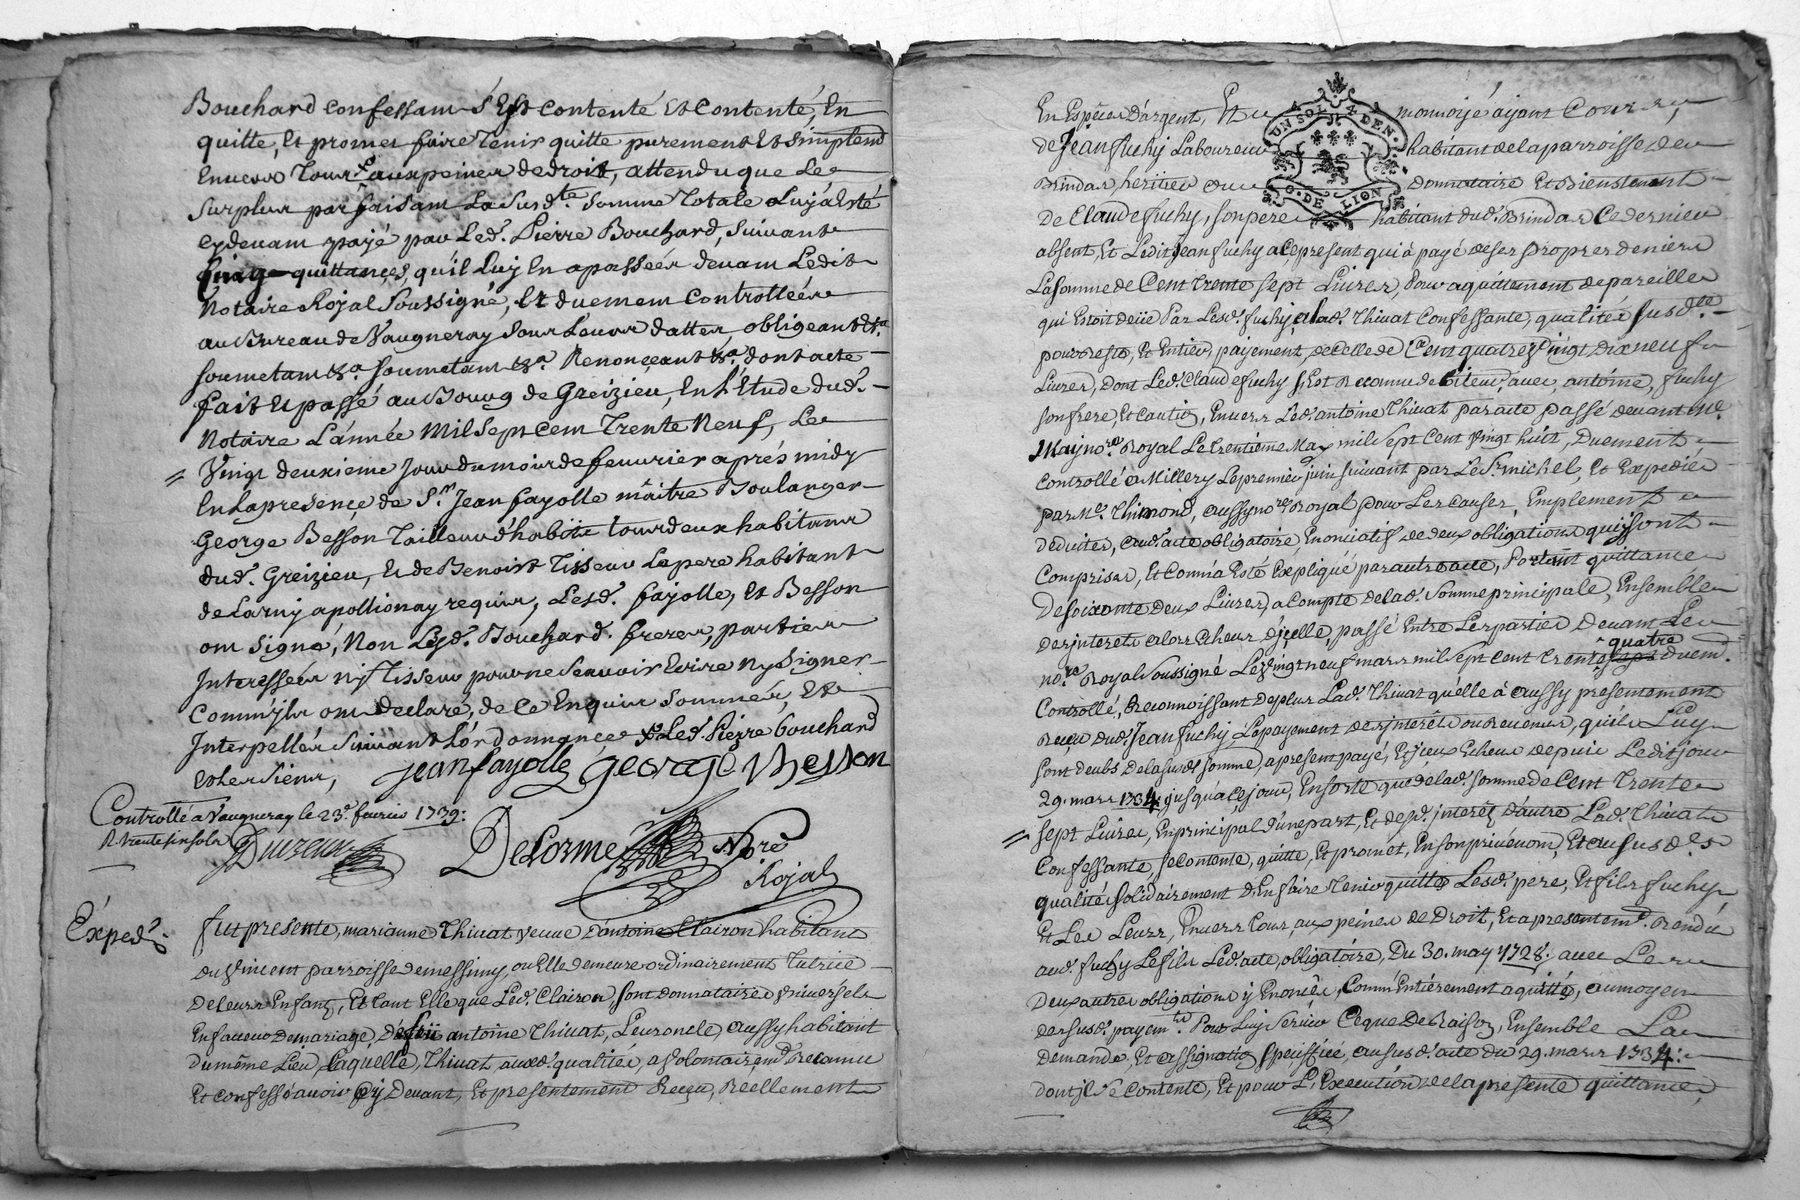 Bouchard confessant s'est contenté et contente, En
quitte, et promet faire tenir quitte purement et simplemt
Envers tous aux peines de droit, attendu que Le
Surplus parfaisant La susdte. somme totale a luy a Esté
cy devant payé par Led. Pierre Bouchard, suivant
quittances, qu'il luy En a passées devant Ledit
Notaire Royal Soussigné, et duement Controllées
au Bureau de Vaugneray sous Leurs dattes, obligeant &a.
soumetant &a. soumetant &a. Renonçeant &a. dont acte
fait et passé au Bourg de Greizieu, En L'Etude dud.
Notaire L'année Mil Sept Cent Trente Neuf, Le
Vingt deuxieme Jour du mois de fevrier après midy
En la presence de Sr. Jean fayolle maître Boulanger
George Besson Tailleur d'habits tous deux habitans
dud. Greizieu, et de Benoist Tisseur Le pere habitant
de Larny apollionay requis, Lesd. fayolle, et Besson
ont signé, Non Lesd. Bouchard freres, parties
Interessées ny Tisseur pour ne Scavoir Ecrire ny Signer
Comm'ils ont declaré, de Ce Enquis sommés, et
Interpellés Suivant L'ordonnance Led. Pierre bouchard
et les siens, jean fayolle george besson
Controllé a Vaugneray le 23e. fevrier 1739:
R. trente six sols
Delorme Nore
Royal
Expedé.
fut presente, marianne Thivat veuve d'antoine Clairon habitant
du St. vincent parroisse de messimy, ou Elle demeure ordinairement Tutrice
De leurs Enfans, Et tant Elle que Led. Clairon, sont donnataires universels
En faveur de mariage, De feu antoine Thivat, Leur oncle, aussy habitant
du même Lieu, Laquelle, Thivat auxd. qualités, a volontairemt. Reconnu
Et confessé avoir cy Devant, Et presentement Reçu, Reellement
En Espèces d'argent, Et monnoyé ayant Cours,
UN SOL 4 DEN.
G. DE LION
de Jean fuchy Laboureur habitant de la parroisse de
Brindas heritier ou donnataire Et Bienstenant
De Claude fuchy, son pere habitant dud. Brindas Ce dernier
absent, Et Ledit Jean fuchy a Ce present qui a payé de ses propres deniers
La somme de Cent trente sept Livres, Pour aquittement de pareille
qui Estoit deüe Par Lesd. fuchy, a lad. Thivat Confessante, qualités susdtes.
pour reste, et Entier payement de celle de Cent quatre Vingt Dix neuf
Livres, dont Led. Claude fuchy s'Est Reconnu debiteur avec antoine, fuchy
son frere, et Caution, Envers Led. antoine Thivat par acte passé devant Me.
May nore. Royal Le trentieme May mil sept Cent Vingt huit, Duement
Controllé a Millery Le premier juin suivant par Le Sr. michel, Et Expedié
par Me. Thimond, aussy nore. Royal pour Les Causes, Emplement
Deduites, aud. acte obligatoire, Enonciatif de deux obligations qui y sont
Comprises, Et Comm'a Esté Expliqué par autre acte, Portant quittance
De soixante deux Livres, a Compte de lad. Somme principale, Ensemble
des interets alors Echeus d'jcelle, passé Entre Les parties Devant Le
quatre
nore. Royal Soussigné Le Vingt neuf mars mil sept cent trente duemt.
Controllé, Reconnoissant De plus Lad. Thivat qu'elle a aussy presentement
Reçu dud. Jean fuchy, Le payement des jnterets ou Revenus, qu'ils Luy
sont deubs de la susd. somme, a present payé, Et jceux Echeus depuis Ledit jour
29. mars 1734. jusqu'a Ce jour, En sorte que de lad. somme de Cent Trente
sept Livres, En principal d'une part, Et desd. jnterets d'autre Lad. Thivat
Confessante, se contente, quitte, Et promet, En son privé nom, Et au susdes.
qualités solidairement d'En faire tenir quittes Lesd. pere, Et fils fuchy,
Et Les Leurs, Envers tous aux peines de Droit, Et a presentemt. Rendu
aud. fuchy Le fils Led. acte, obligatoire, Du 30. may 1728. avec Les
Deux autres obligations y Enoncées, Comm'Entiérement aquitté, au moyen
des susd. payemts. Pour Luy Servir Ce que De Raison, Ensemble La
Demande, Et assignation Speciffiée, au susd. acte du 29. mars 1734:
dont il se Contente, Et pour L'Execution de la presente quittance,